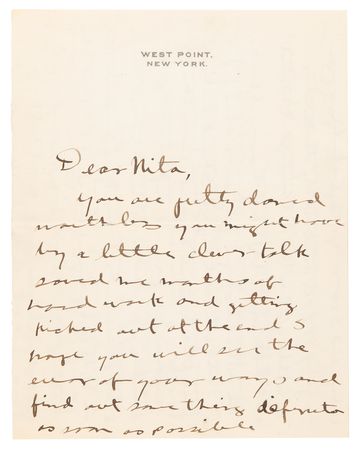 WEST POINT,
NEW YORK.
Dear Nita,
You are pretty darned
worthless you might have
by a little clever talk
saved me months of
hard work and getting
kicked out at the end I
hope you will see the
error of your ways and
find out something definite
as soon as possible